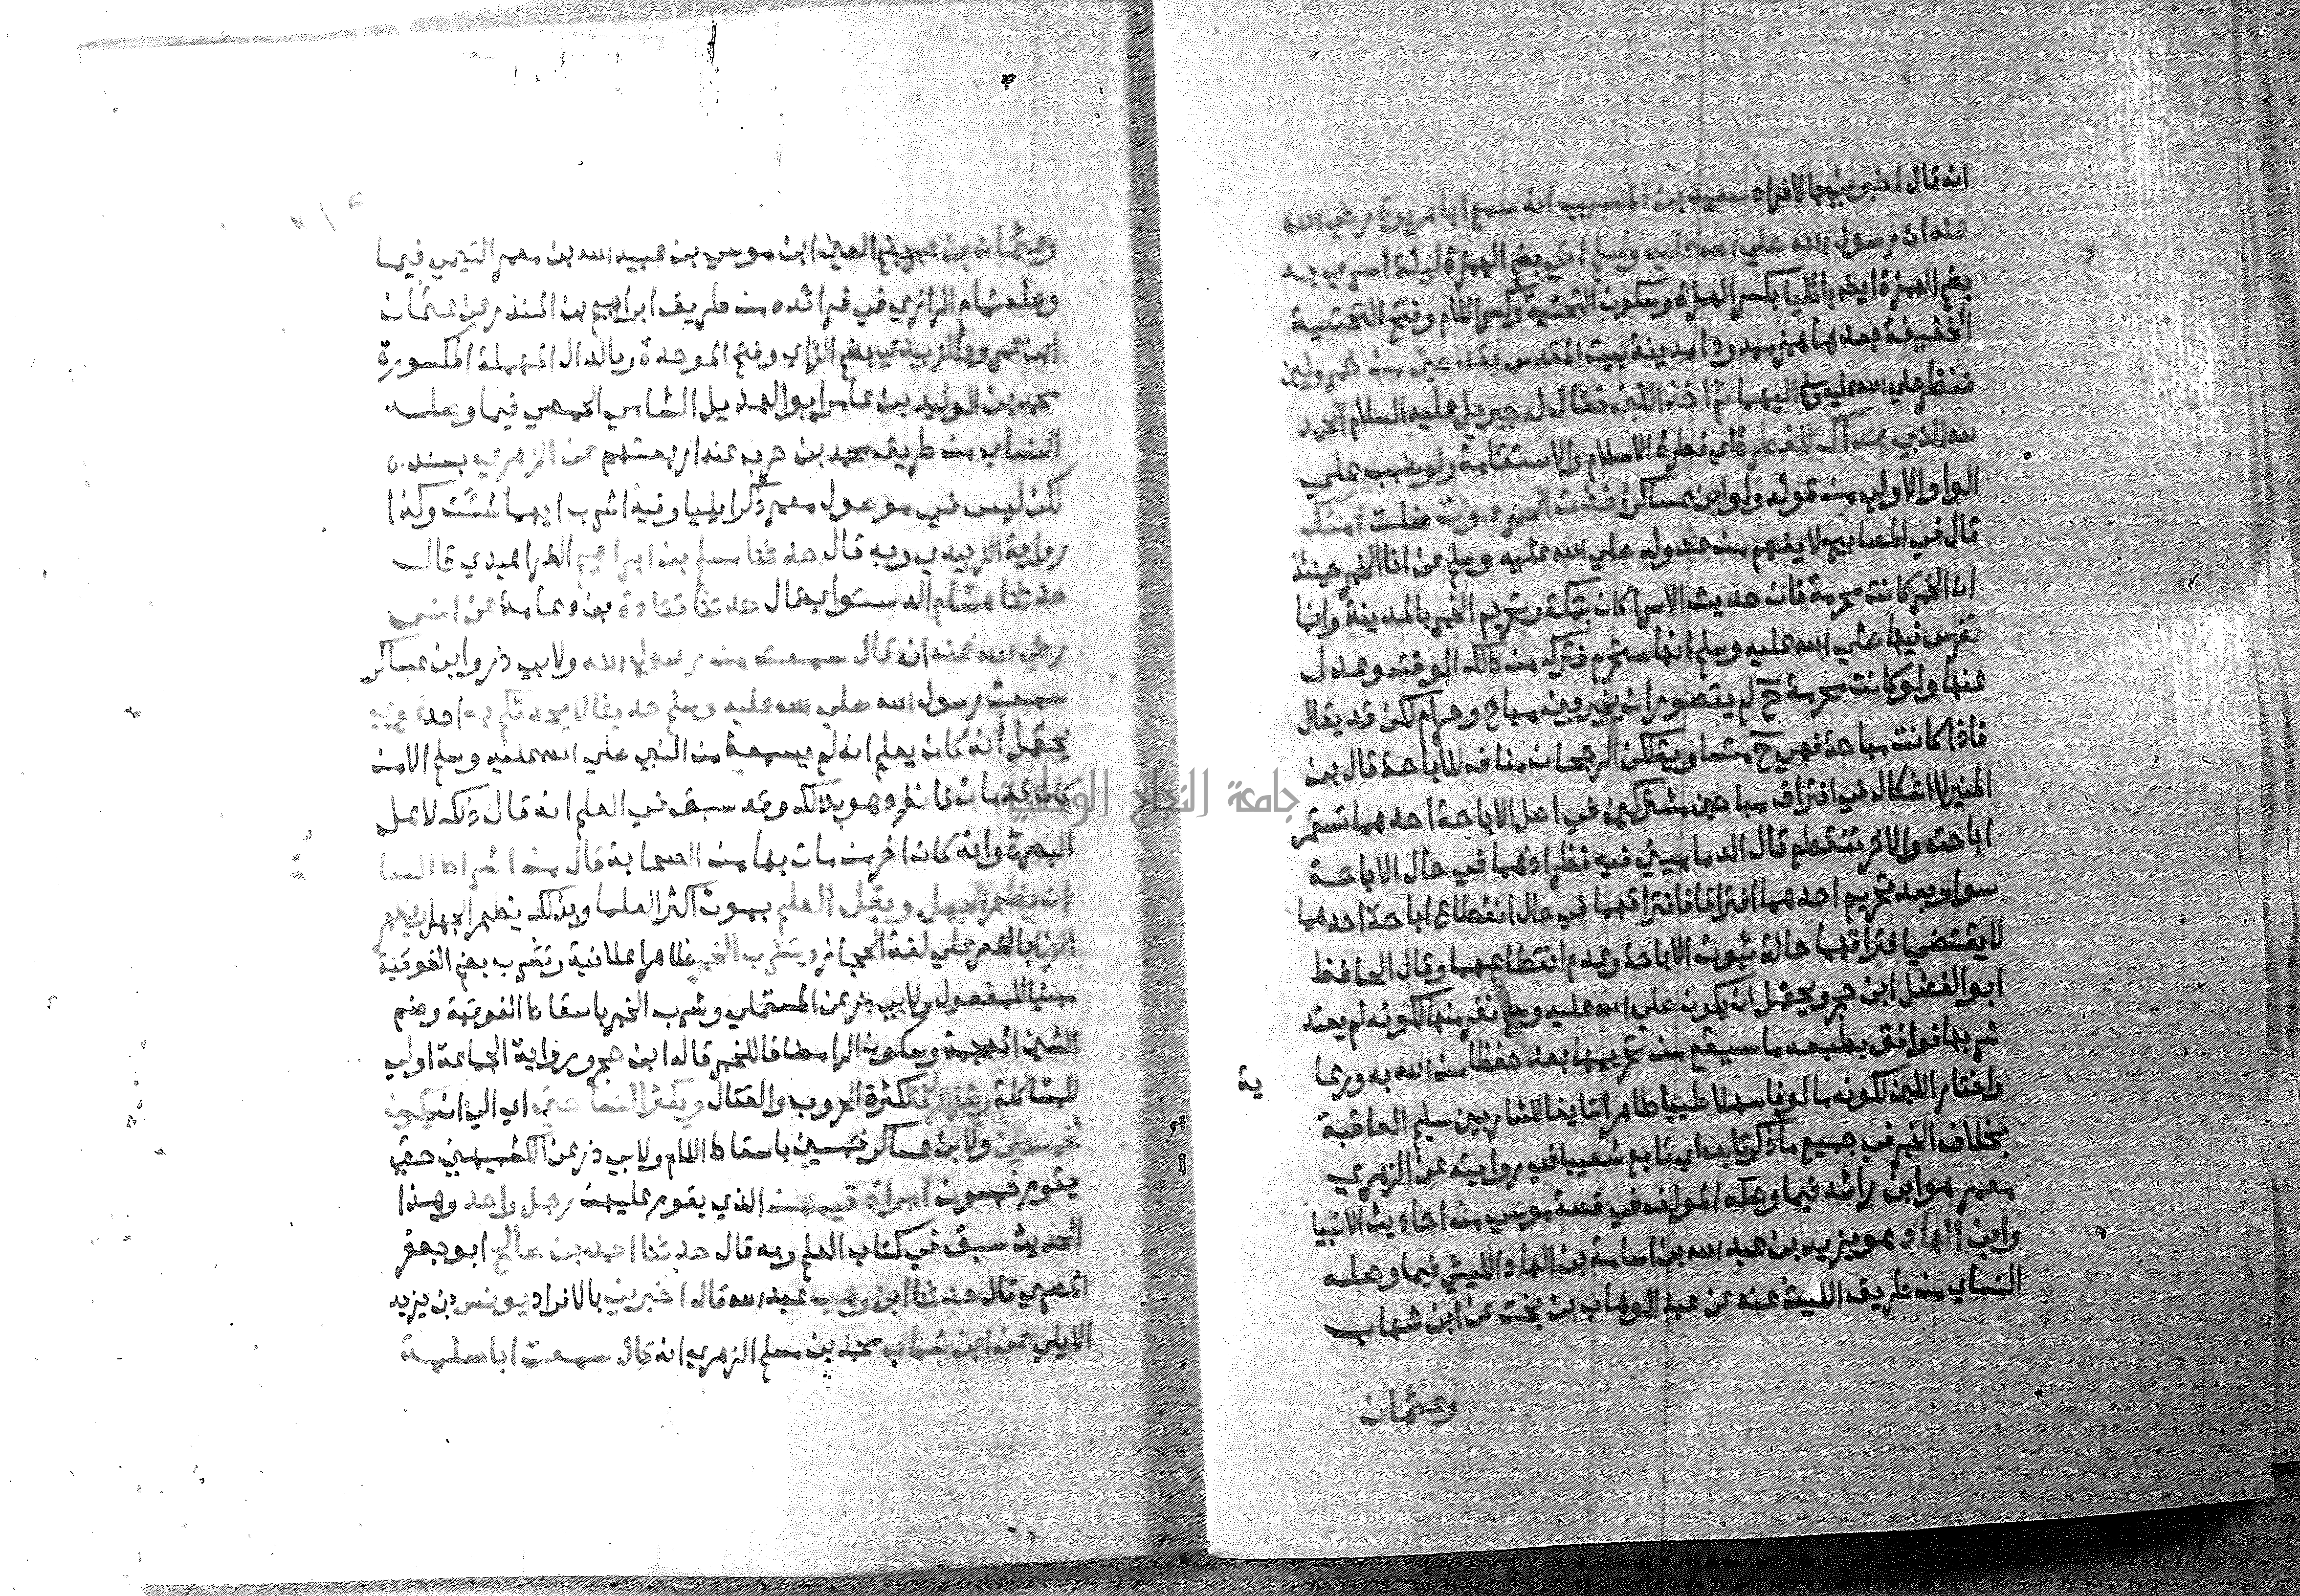 انه قال اخبرني بالافراد سعيد بن المسيب انه سمع ابا هريرة رضي الله
عنه ان رسول الله صلي الله عليه وسلم اتي بضم الهمزة ليلة اسري به
بضم الهمزة ايضا بايليا بكسر الهمزة وسكون التحتية وكسر اللام وفتح التحتية
الخفيفة بعدها همز ممدودا مدينة بيت المقدس بقدحين من خمر ولبن
فنظر صلي الله عليه وسلم اليهما ثم اخذ اللبن فقال له جبريل عليه السلام الحمد
لله الذي هداك للفطرة اي فطرة الاسلام والاستقامة ولو ضبب علي
الواو الاولي من قوله ولو ابن عساكر اخذت الخمر غوت امتك
قال في المصابيح لا يفهم من عدوله صلي الله عليه وسلم عن انا الخمر حينئذ
ان الخمر كانت محرمة فان حديث الاسرا كان بمكة وتحريم الخمر بالمدينة وانما
تفرس فيها صلي الله عليه وسلم انها ستحرم فتركه من ذلك الوقت وعدل
عنها ولو كانت محرمة ح لم يتصور ان يخير بين مباح وحرام لكن قد يقال
فاذا كانت مباحة فهي ح متساوية لكن الرجحان مناف للاباحة قال بن
المنير لا اشكال في افتراق مباحين مشتركين في اصل الاباحة احدهما تستمر
اباحته والاخر تنقطع قال الدماميني فيه نظر اذهما في حال الاباحة
سوا وبعد تحريم احدهما افترقا فافتراقهما في حال انقطاع اباحة احدهما
لا يقتضي افتراقهما حالة ثبوت الاباحة وعدم انقطاعهما وقال الحافظ
ابو الفضل ابن حجر ويحتمل ان يكون صلي الله عليه وسلم نفر منها لكونه لم يعتد
شربها فوافق بطبعه ما سيقع من تحريمها بعد حفظا من الله به ورعا
ية
واختار اللبن لكونه مالوفا سهلا طيبا طاهرا سايغا للشاربين سليم العاقبة
بخلاف الخمر في جميع ما ذكر تابعه اي تابع شعيبا في روايته عن الزهري
معمر هو ابن راشد فيما وصله المولف في قصة موسي من احاديث الانبيا
وابن الهاد هو يزيد بن عبد الله بن اسامة بن الهاد الليثي فيما وصله
النساي من طريق الليث عنه عن عبد الوهاب بن بخت عن ابن شهاب
وعثمان
وعثمان بن عمر بضم العين ابن موسي بن عبيد الله بن معمر التيمي فيما
وصله تمام الرازي في فوائده من طريق ابراهيم بن المنذر عن عثمان
ابن عمر والزبيدي بضم الزاي وفتح الموحدة وبالدال المهملة المكسورة
محمد بن الوليد بن عامر ابو الهذيل الشامي الحمصي فيما وصله
النساي من طريق محمد بن حرب عنه اربعتهم عن الزهري بسنده
لكن ليس في موصول معمر ذكر ايليا وفيه اشرب ايهما شئت وكذا
رواية الزبيدي وبه قال حدثنا مسلم بن ابراهيم الفراهيدي قال
حدثنا هشام الدستوايي قال حدثنا قتادة بن دعامة عن انس
رضي الله عنه انه قال سمعت من رسول الله ولابي ذر وابن عساكر
سمعت رسول الله صلي الله عليه وسلم حديثا لا يحدثكم به احد غيري
يحتمل انه كان يعلم انه لم يسمعه من النبي صلي الله عليه وسلم الا من
كان قد مات فانفرد هو بذلك وقد سبق في العلم انه قال ذلك لاهل
البصرة وانه كان اخر من مات بها من الصحابة قال من اشراط السا
ة
ان يظهر الجهل ويقل العلم بموت اكثر العلما وبذلك يظهر الجهل ويظهر
الزنا بالقصر علي لغة الحجاز وتشرب الخمر ظاهرا علانية وتشرب بضم الفوقية
مبنيا للمفعول ولابي ذر عن المستملي وشرب الخمر باسقاط الفوقية وضم
الشين المعجمة وسكون الرا مضافا للخمر قاله ابن حجر ورواية الجماعة اولي
للمشاكلة ويقل الرجال لكثرة الحروب والقتال ويكثر النسا حتي اي الي ان يكون
لخمسين ولابن عساكر خمسين باسقاط اللام ولابي ذر عن الكشميهني حتي
يقوم خمسون امراة قيمهن الذي يقوم عليهن رجل واحد وهذا
الحديث سبق في كتاب العلم وبه قال حدثنا احمد بن صالح ابو جعفر
المصري قال حدثنا ابن وهب عبد الله قال اخبرني بالافراد يونس بن يزيد
الايلي عن ابن شهاب محمد بن مسلم الزهري انه قال سمعت ابا سلمة
جامعة النجاح الوطنية